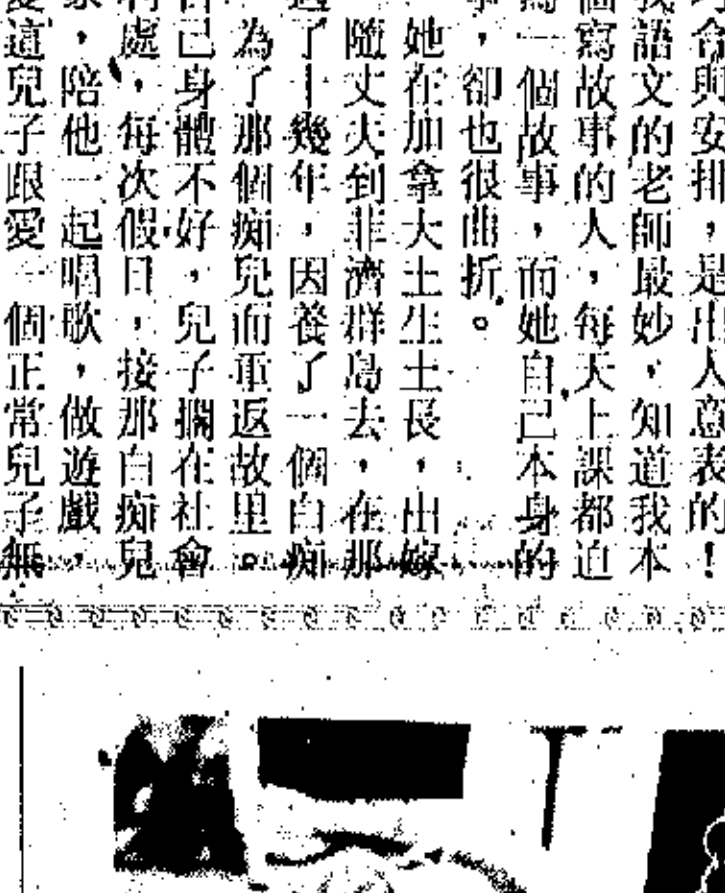 巧合與安排，是出人意表的！
我語文的老師最妙，知道我本
個寫故事的人，每天上課都迫
寫一個故事，而她自己本身的
事，卻也很曲折。
她在加拿大土生土長，出嫁
隨丈夫到非濟群島去，在那
過了十幾年，因養了一個白痴
為了那個痴兒而重返故里。
自己身體不好，兒子擱在社會
處，每次假日，接那白痴兒
家，陪他一起唱歌，做遊戲，
愛這兒子跟愛一個正常兒子無